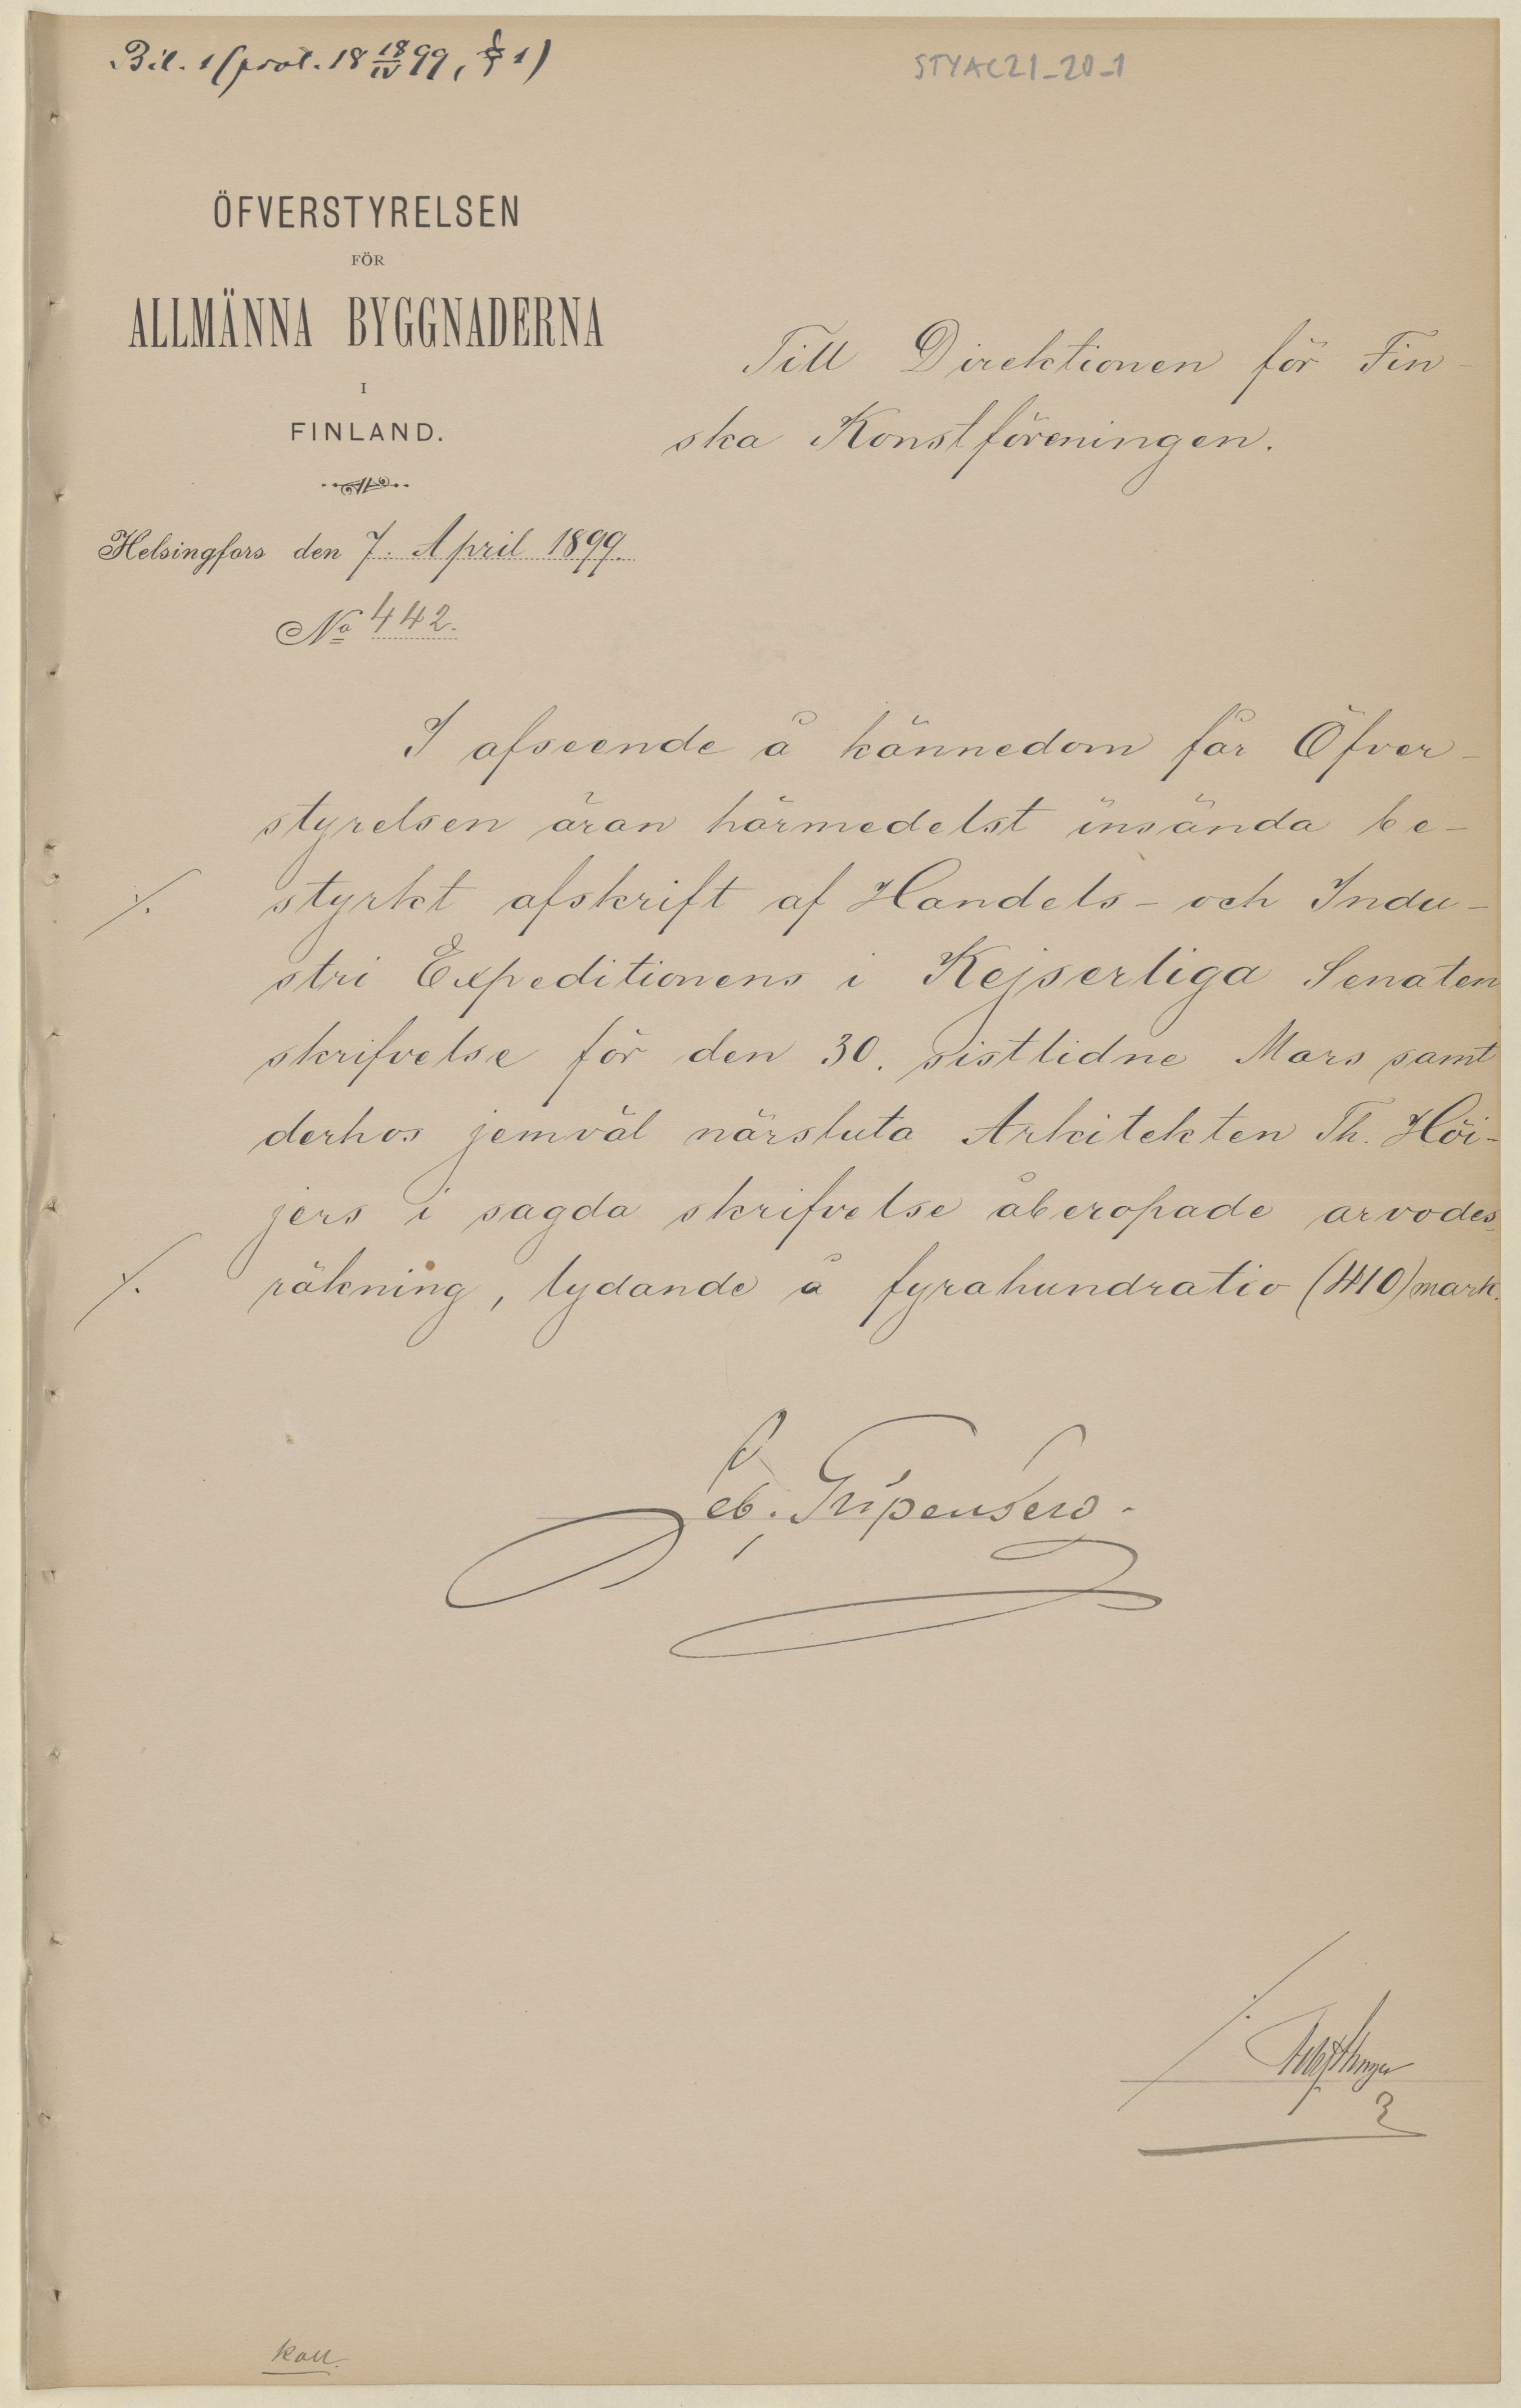 Bil. 1 (prot. 18 18/IV 99, § 1)
STYAC21_20_1
ÖFVERSTYRELSEN
FÖR
ALLMÄNNA BYGGNADERNA
I
FINLAND.
Helsingfors den 7. April 1899.
No 442.
Till Direktionen för Fin-
ska Konstföreningen.
I afseende å kännedom får Öfver-
styrelsen äran härmedelst insända be-
styrkt afskrift af Handels- och Indu-
stri Expeditionens i Kejserliga Senaten
skrifvelse för den 30. sistlidne Mars samt
derhos jemväl närsluta Arkitekten Th. Höi-
jers i sagda skrifvelse åberopade arvodes-
räkning, lydande å fyrahundratio (410) mark.
Seb. Gripenberg.
Koll.